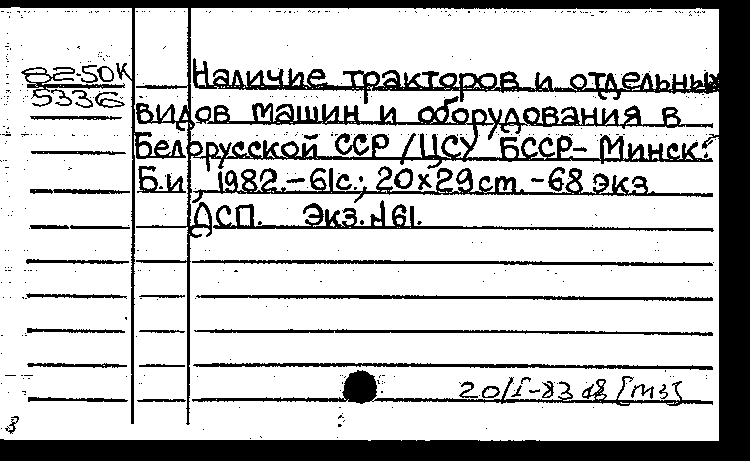 82-50К
5336
Наличие тракторов и отдельных
видов машин и оборудования в
Белорусской ССР /ЦСУ БССР.- Минск:
Б.и., 1982.-61с.; 20х29см.-68 экз.
ДСП. Экз.№61.
20/I-83
8